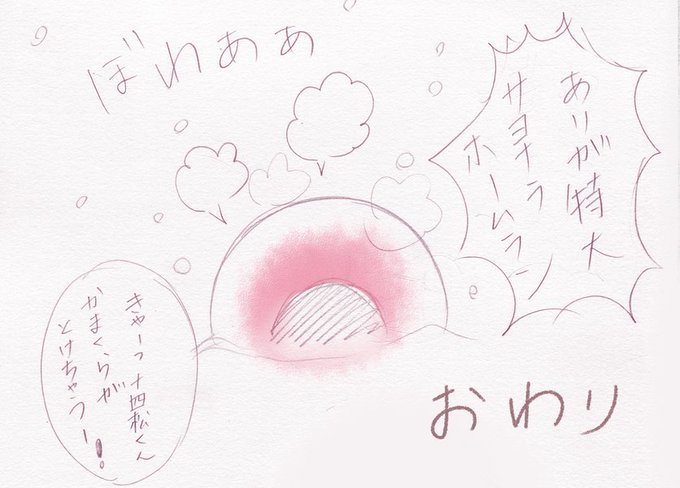 ぼわぁぁ
ありが特大
サヨナラ
ホームラン
きゃーっ十四松くん
かまくらが
とけちゃうー!
おわり